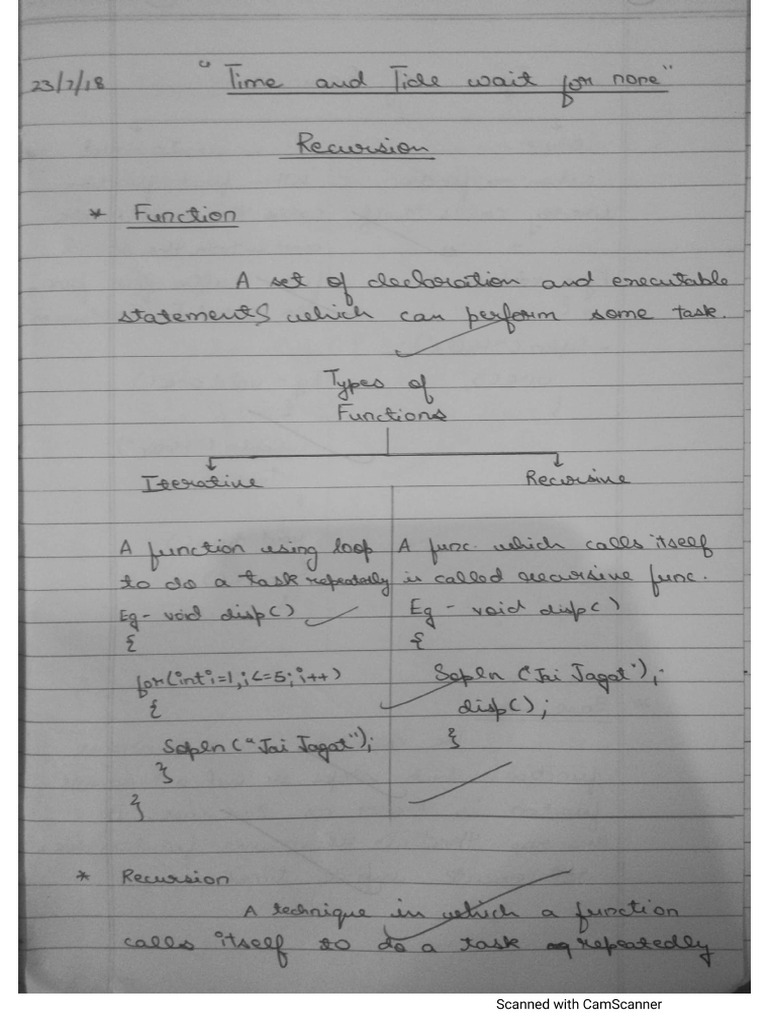 23/7/18 "Time and Tide wait for none"
Recursion
* Function
A set of declaration and executable
statements which can perform some task.
Types of
Functions
Iterative
Recursive
A function using loop
to do a task repeatedly
Eg - void disp()
{
for(int i=1,i<=5;i++)
{
Sopln("Jai Jagat");
}
}
A func. which calls itself
is called recursive func.
Eg - void disp()
{
Sopln ("Jai Jagat");
disp();
}
* Recursion
A technique in which a function
calls itself to do a task repeatedly
Scanned with CamScanner